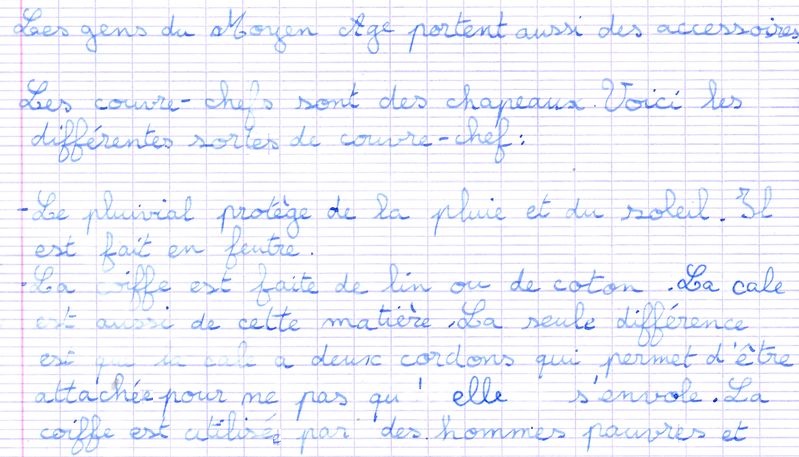 Les gens du Moyen Age portent aussi des accessoires
Les couvre-chefs sont des chapeaux. Voici les
différentes sortes de couvre-chef :
- Le pluivial protège de la pluie et du soleil. Il
est fait en feutre.
- La coiffe est faite de lin ou de coton. La cale
est aussi de cette matière. La seule différence
est que la cale a deux cordons qui permet d'être
attachée pour ne pas qu'elle s'envole. La
coiffe est utilisée par des hommes pauvres et